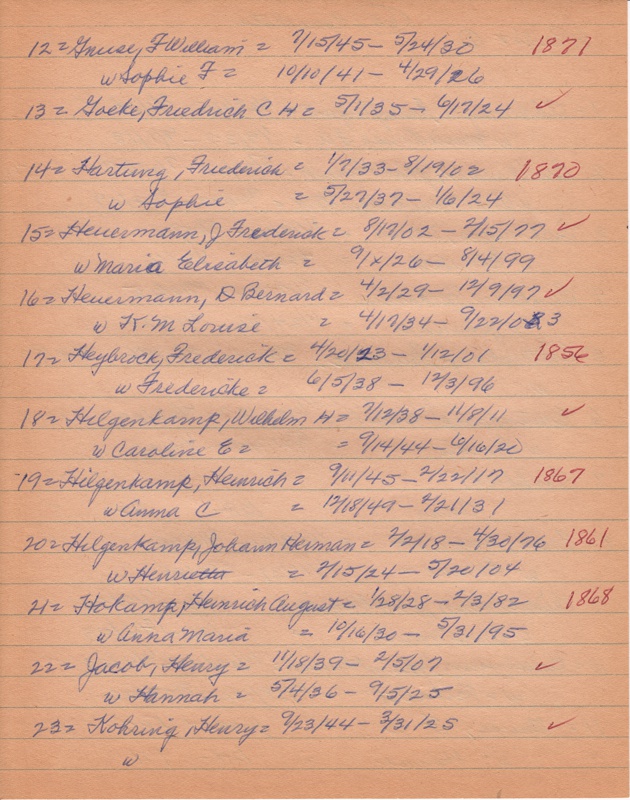 12 = Gnuse, F William = 7/15/45 - 5/24/30 1871
w Sophie F = 10/10/41 - 4/29/26
13 = Goeke, Friedrich C H = 5/1/35 - 6/17/24 ✓
14 = Hartung, Friederich = 1/7/33 - 8/19/02 1870
w Sophie = 5/27/37 - 1/6/24
15 = Heuermann, J Frederick = 8/17/02 - 2/15/77 ✓
w Maria Elisabeth = 9/x/26 - 8/4/99
16 = Heuermann, D Bernard = 4/2/29 - 12/9/97 ✓
w K. M Louise = 4/17/34 - 9/22/03
17 = Heybrock, Frederick = 4/20/23 - 1/12/01 1856
w Fredericke = 6/5/38 - 12/3/96
18 = Hilgenkamp, Wilhelm H = 7/12/38 - 11/8/11 ✓
w Caroline E = = 9/14/44 - 6/16/20
19 = Hilgenkamp, Heinrich = 9/11/45 - 2/22/17 1867
w Anna C = 12/18/49 - 2/21/31
20 = Hilgenkamp, Johann Herman = 2/2/18 - 4/30/76 1861
w Henrietta = 2/15/24 - 5/20/04
21 = Hokamp, Heinrich August = 1/28/28 - 2/3/82 1868
w Anna Maria = 10/16/30 - 5/31/95
22 = Jacob, Henry = 11/18/39 - 2/5/07 ✓
w Hannah = 5/4/36 - 9/5/25
23 = Kohring, Henry = 9/23/44 - 3/31/25 ✓
w